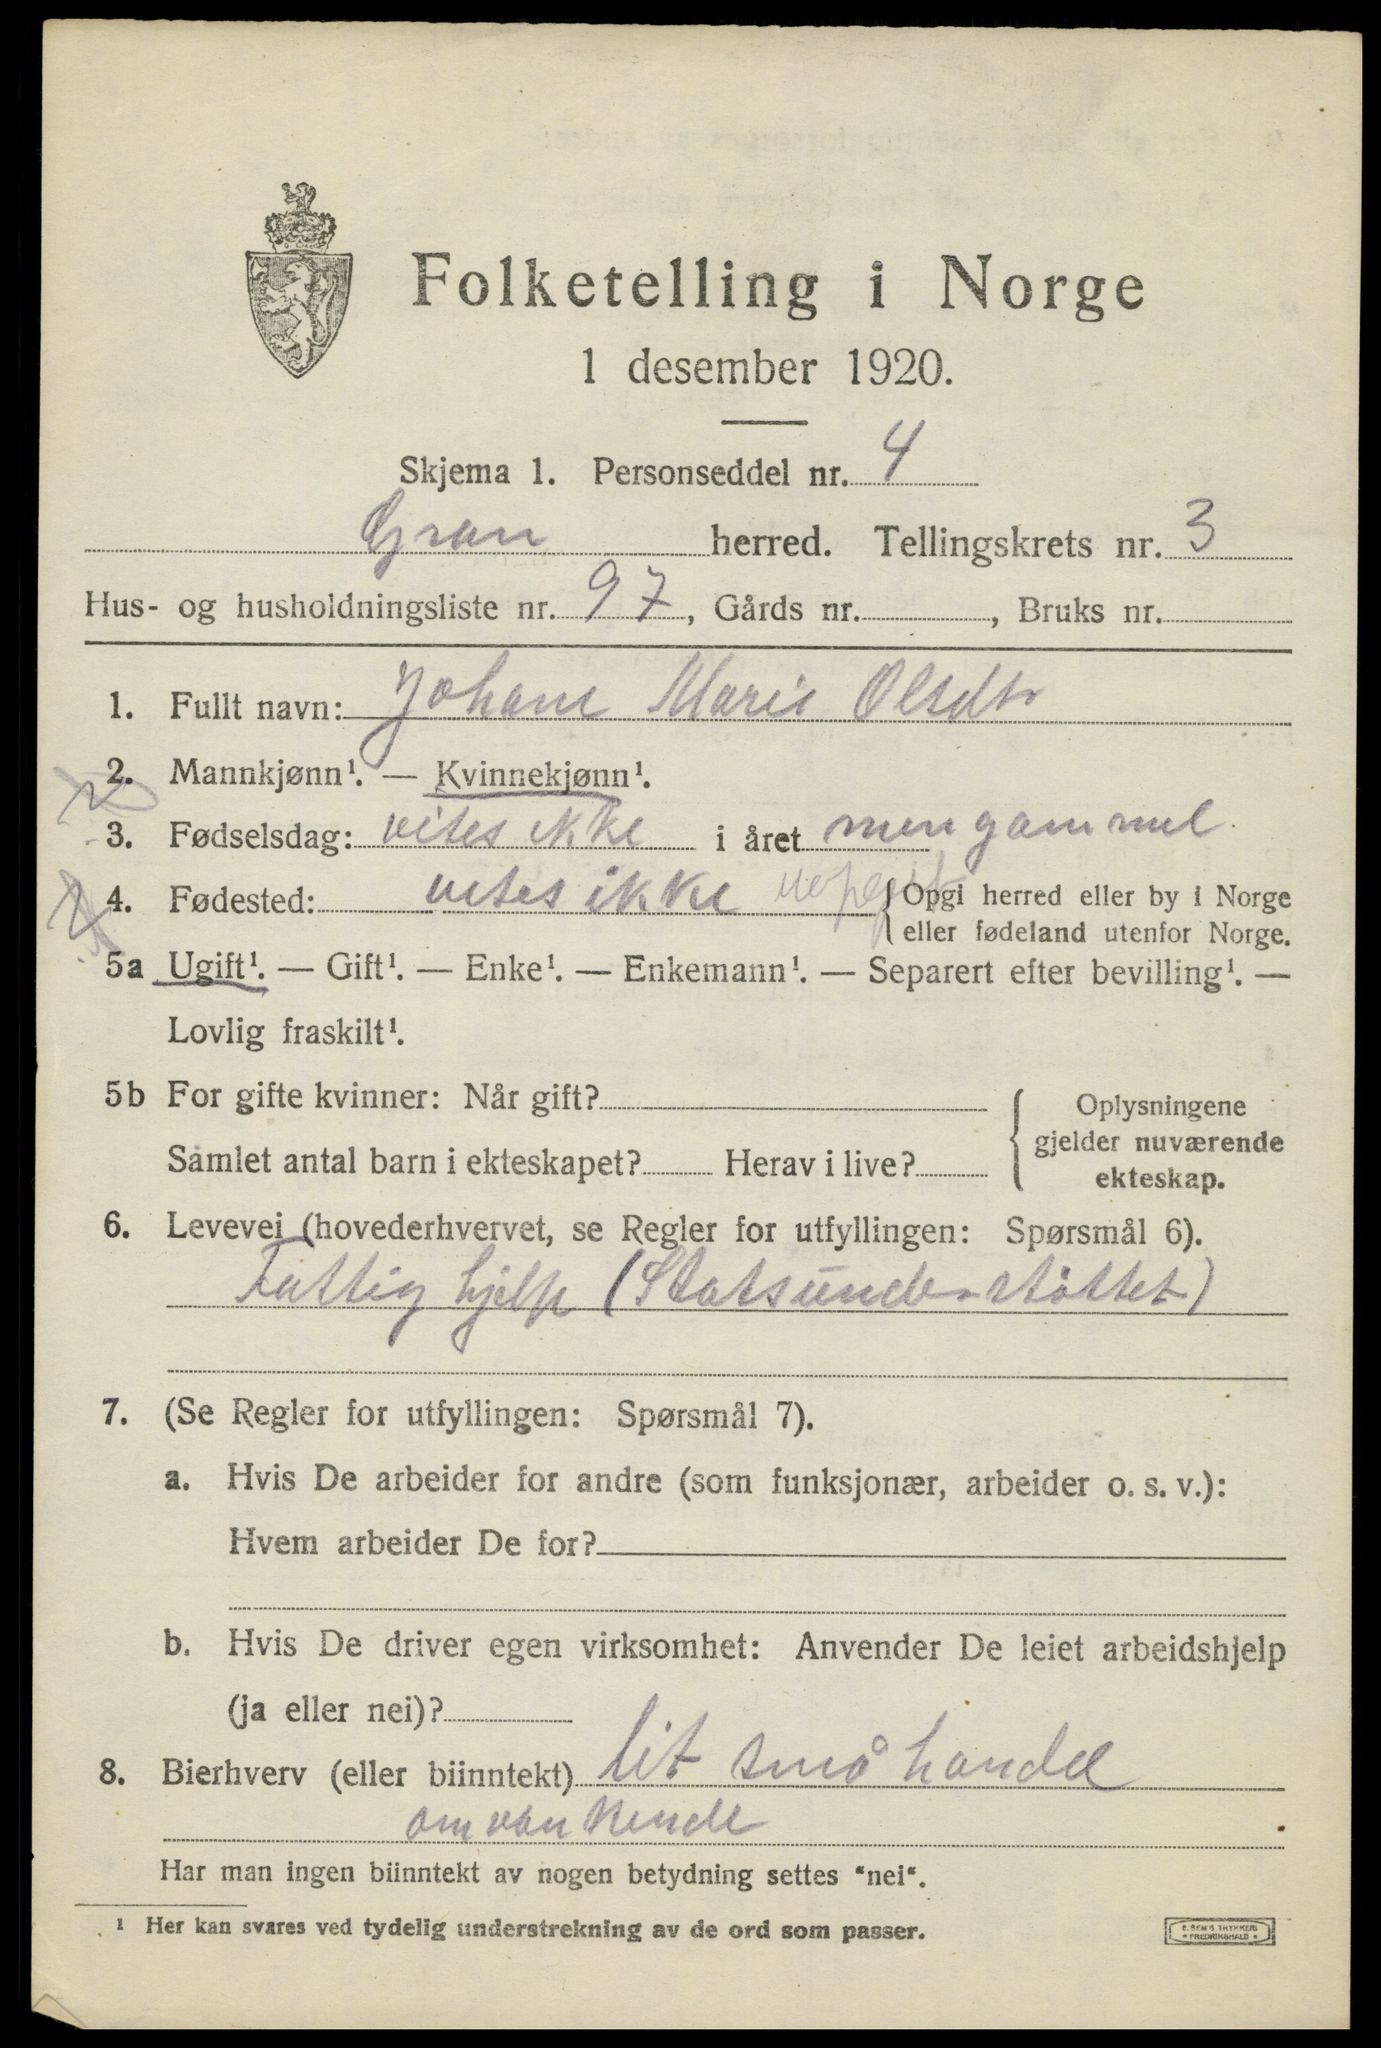 Folketelling i Norge
1 desember 1920.
Skjema 1. Personseddel nr. 4
Gran herred. Tellingskrets nr. 3
Hus- og husholdningsliste nr. 97, Gårds nr. , Bruks nr.
1. Fullt navn: Johane Marie Olsdtr
2. Mannkjønn¹. — Kvinnekjønn¹.
3. Fødselsdag: vites ikke i året men gammel.
4. Fødested: vites ikke uopgit {Opgi herred eller by i Norge
eller fødeland utenfor Norge.
5a Ugift¹. — Gift¹. — Enke¹. — Enkemann¹. — Separert efter bevilling¹. —
Lovlig fraskilt¹.
5b For gifte kvinner: Når gift? { Oplysningene
gjelder nuværende
Samlet antal barn i ekteskapet? Herav i live?
ekteskap.
6. Levevei (hovederhvervet, se Regler for utfyllingen: Spørsmål 6).
Fattig hjelp (Statsunderstøttet)
7. (Se Regler for utfyllingen: Spørsmål 7).
a. Hvis De arbeider for andre (som funksjonær, arbeider o. s. v.):
Hvem arbeider De for?
b. Hvis De driver egen virksomhet: Anvender De leiet arbeidshjelp
(ja eller nei)?
8. Bierhverv (eller biinntekt) lit små handel
omvankende
Har man ingen biinntekt av nogen betydning settes "nei".
¹ Her kan svares ved tydelig understrekning av de ord som passer.
E. SEM'S TRYKKERI
FREDRIKSHALD